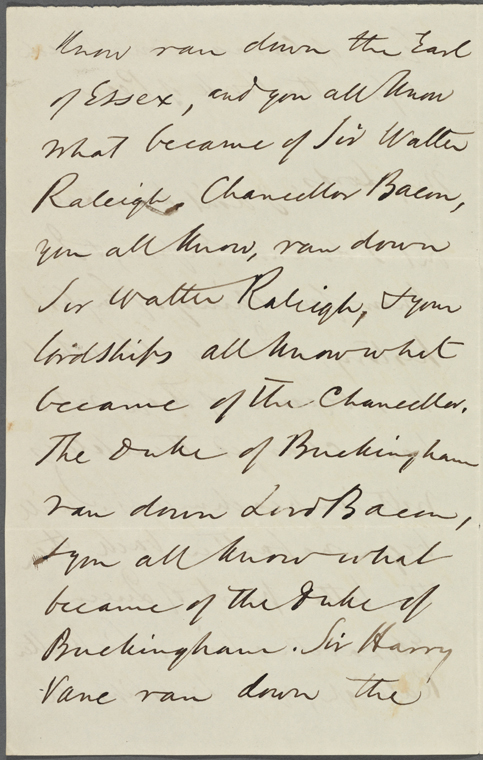 know ran down the Earl
of Essex, and you all know
what became of Sir Walter
Raleigh. Chancellor Bacon,
you all know, ran down
Sir Walter Raleigh, & your
lordships all know what
became of the Chancellor.
The Duke of Buckingham
ran down Lord Bacon,
& you all know what
became of the Duke of
Buckingham. Sir Harry
Vane ran down the